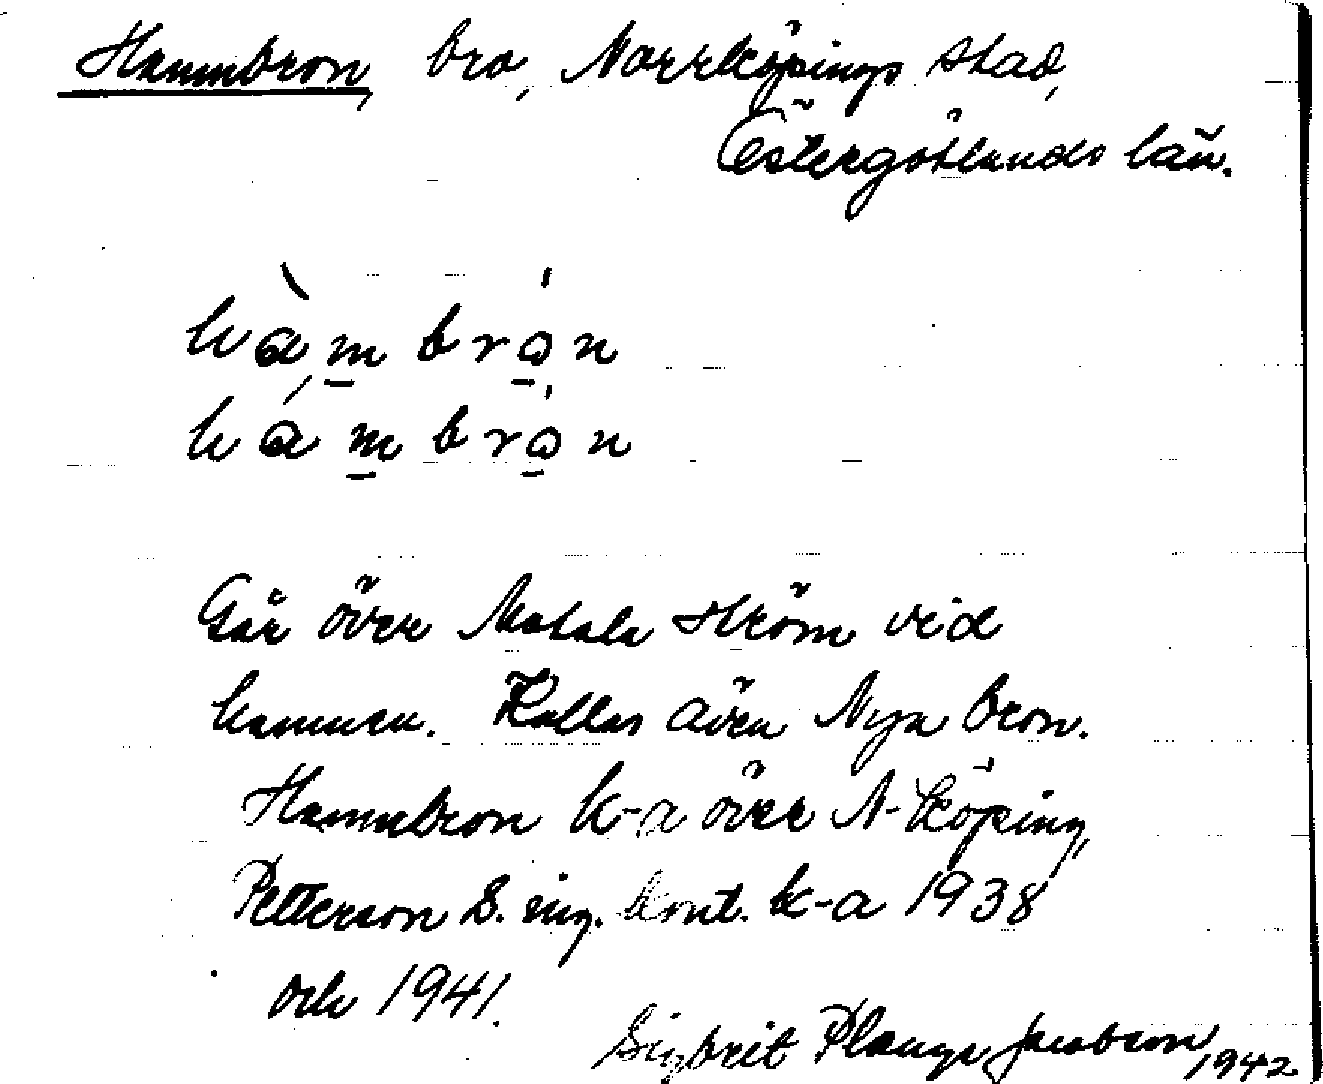 Hamnbron, bro, Norrköpings stad,
Östergötlands län.
hàmbrón
hámbrón
Går över Motala ström vid
hamnen. Kallas även Nya bron.
Hamnbron k-a över N-köping,
Petterson S. ing. kont. k-a 1938
och 1941.
Sigbrit Plange Jacobson 1942